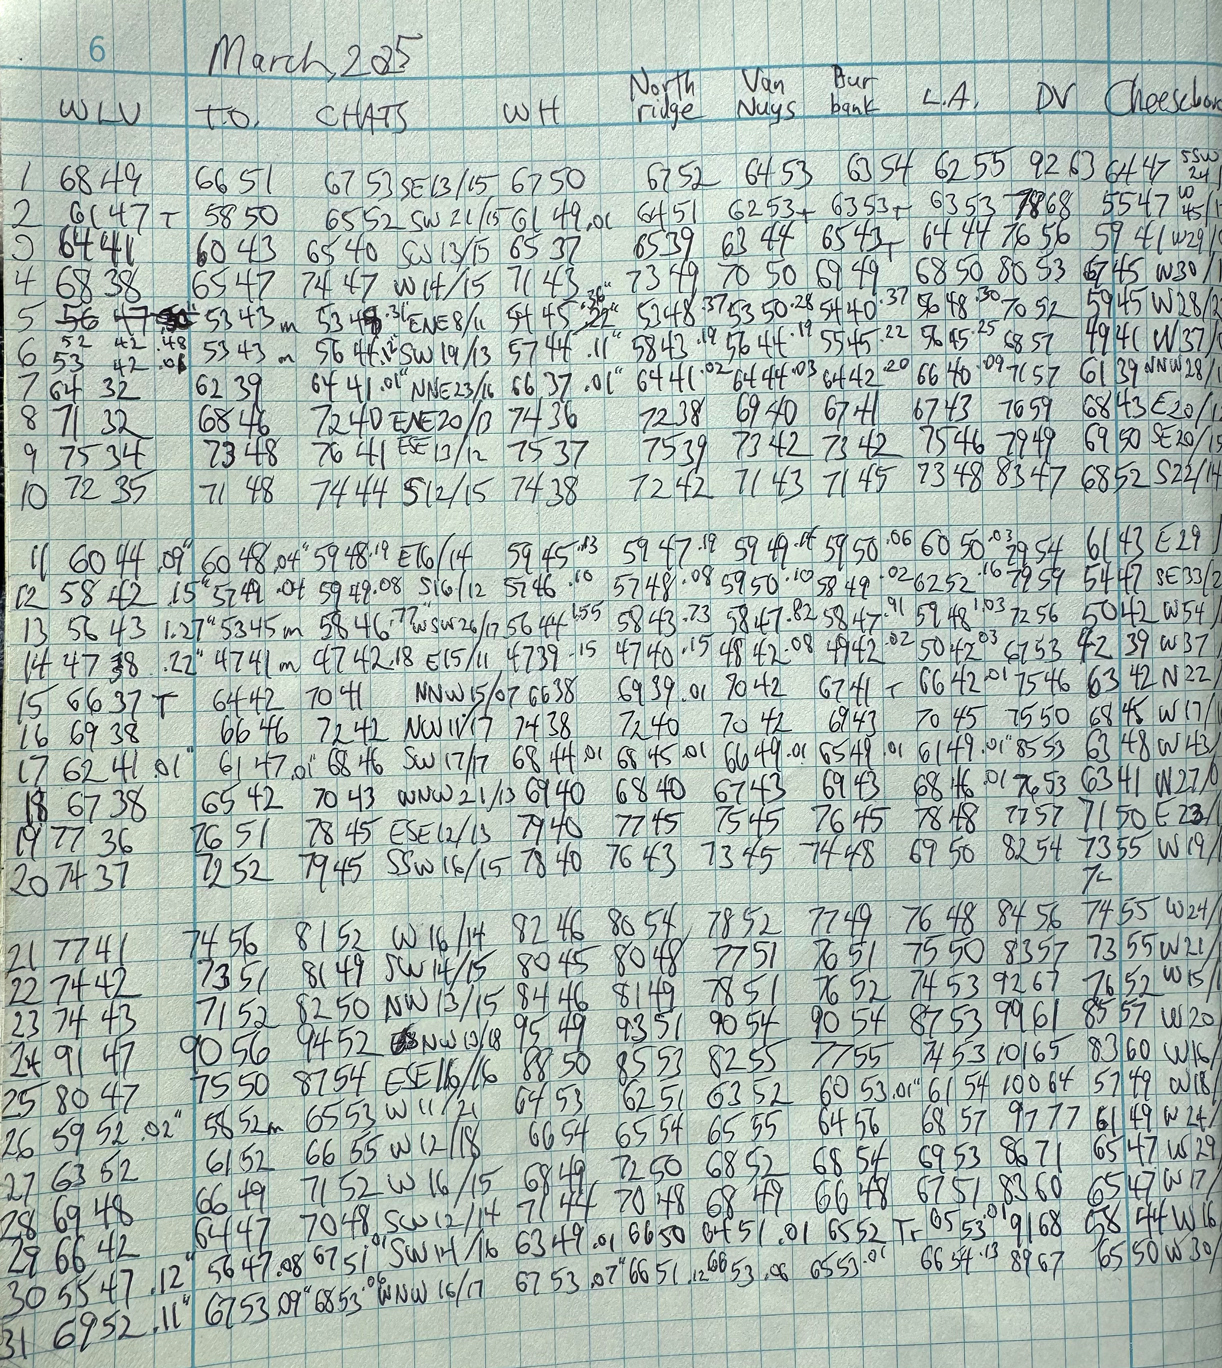 6 March, 2025
WLV T.O. CHATS WH North ridge Van Nuys Bur bank L.A. DV Cheesebor
1 68 49 66 51 67 53 SE13/15 67 50 67 52 64 53 63 54 62 55 92 63 64 47 SSW 24
2 61 47 T 58 50 65 52 SW 21/15 61 49 .01 64 51 62 53 T 63 53 T 63 53 78 68 55 47 W 45/1
3 64 41 60 43 65 40 SW 13/15 65 37 65 39 63 44 65 43 T 64 44 76 56 59 41 W29/
4 68 38 65 47 74 47 W 14/15 71 43 73 49 70 50 69 49 68 50 80 53 67 45 W30/1
5 52 42 .48 53 43 m 53 48 .31" ENE 8/11 54 45 .36" 53 48 .37 53 50 .28 54 40 .37 56 48 .30 70 52 59 45 W28/2
6 53 42 .01 53 43 m 56 44 .12" SW 19/13 57 44 .11" 58 43 .19 56 44 .19 55 45 .22 56 45 .25 68 57 49 41 W37/
7 64 32 62 39 64 41 .01" NNE23/16 66 37 .01" 64 41 .02 64 44 .03 64 42 .20 66 40 .09 71 57 61 39 NNW28/1
8 71 32 68 46 72 40 ENE 20/13 74 36 72 38 69 40 67 41 67 43 76 59 68 43 E20/1
9 75 34 73 48 76 41 ESE 13/12 75 37 75 39 73 42 73 42 75 46 79 49 69 50 SE20/15
10 72 35 71 48 74 44 S12/15 74 38 72 42 71 43 71 45 73 48 83 47 68 52 S22/14
11 60 44 .09" 60 48 .04" 59 48 .19 E16/14 59 45 .13 59 47 .19 59 49 .14 59 50 .06 60 50 .03 79 54 61 43 E29/
12 58 42 .15" 57 49 .04 59 49 .08 S16/12 57 46 .10 57 48 .08 59 50 .10 58 49 .02 62 52 .16 79 59 54 47 SE33/2
13 56 43 1.27" 53 45 m 58 46 .77" WSW26/17 56 44 1.55 58 43 .73 58 47 .82 58 47 .91 59 48 1.03 72 56 50 42 W54/
14 47 38 .22" 47 41 m 47 42 .18 E15/11 47 39 .15 47 40 .15 48 42 .08 49 42 .02 50 42 .03 67 53 42 39 W37/
15 66 37 T 64 42 70 41 NNW 15/07 66 38 69 39 .01 70 42 67 41 T 66 42 .01 75 46 63 42 N22/
16 69 38 66 46 72 42 NW 11/17 74 38 72 40 70 42 69 43 70 45 75 50 68 45 W17/1
17 62 41 .01" 61 47 .01" 68 46 SW 17/17 68 44 .01 68 45 .01 66 49 .01 65 49 .01 61 49 .01" 85 53 63 48 W43/
18 67 38 65 42 70 43 WNW 21/13 69 40 68 40 67 43 69 43 68 46 .01 76 53 63 41 W27/0
19 77 36 76 51 78 45 ESE 12/13 79 40 77 45 75 45 76 45 78 48 77 57 71 50 E23/
20 74 37 72 52 79 45 SSW 16/15 78 40 76 43 73 45 74 48 69 50 82 54 73 55 W19/
21 77 41 74 56 81 52 W 16/14 82 46 80 54 78 52 77 49 76 48 84 56 74 55 W24/
22 74 42 73 51 81 49 SW 14/15 80 45 80 48 77 51 76 51 75 50 83 57 73 55 W21/
23 74 43 71 52 82 50 NW 13/15 84 46 81 49 78 51 76 52 74 53 92 67 76 52 W15/
24 91 47 90 56 94 52 NW 13/18 95 49 93 51 90 54 90 54 87 53 99 61 85 57 W20
25 80 47 75 50 87 54 ESE 16/16 88 50 85 53 82 55 77 55 74 53 101 65 83 60 W16/
26 59 52 .02" 58 52 m 65 53 W 11/21 64 53 62 51 63 52 60 53 .01" 61 54 100 64 57 49 W18/
27 63 52 61 52 66 55 W 12/18 66 54 65 54 65 55 64 56 68 57 97 77 61 49 W24/
28 69 48 66 49 71 52 W 16/15 68 49 72 50 68 52 68 54 69 53 86 71 65 47 W29/
29 66 42 64 47 70 48 SW 12/14 71 44 70 48 68 49 66 48 67 51 83 60 65 47 W17/
30 55 47 .12" 56 47 .08 67 51 .01" SW 14/16 63 49 .01 66 50 64 51 .01 65 52 Tr 65 53 .01 91 68 58 44 W16
31 69 52 .11" 67 53 .09" 68 53 .06 WNW 16/17 67 53 .07" 66 51 .12 66 53 .06 65 53 .01 66 54 .13 89 67 65 50 W30/